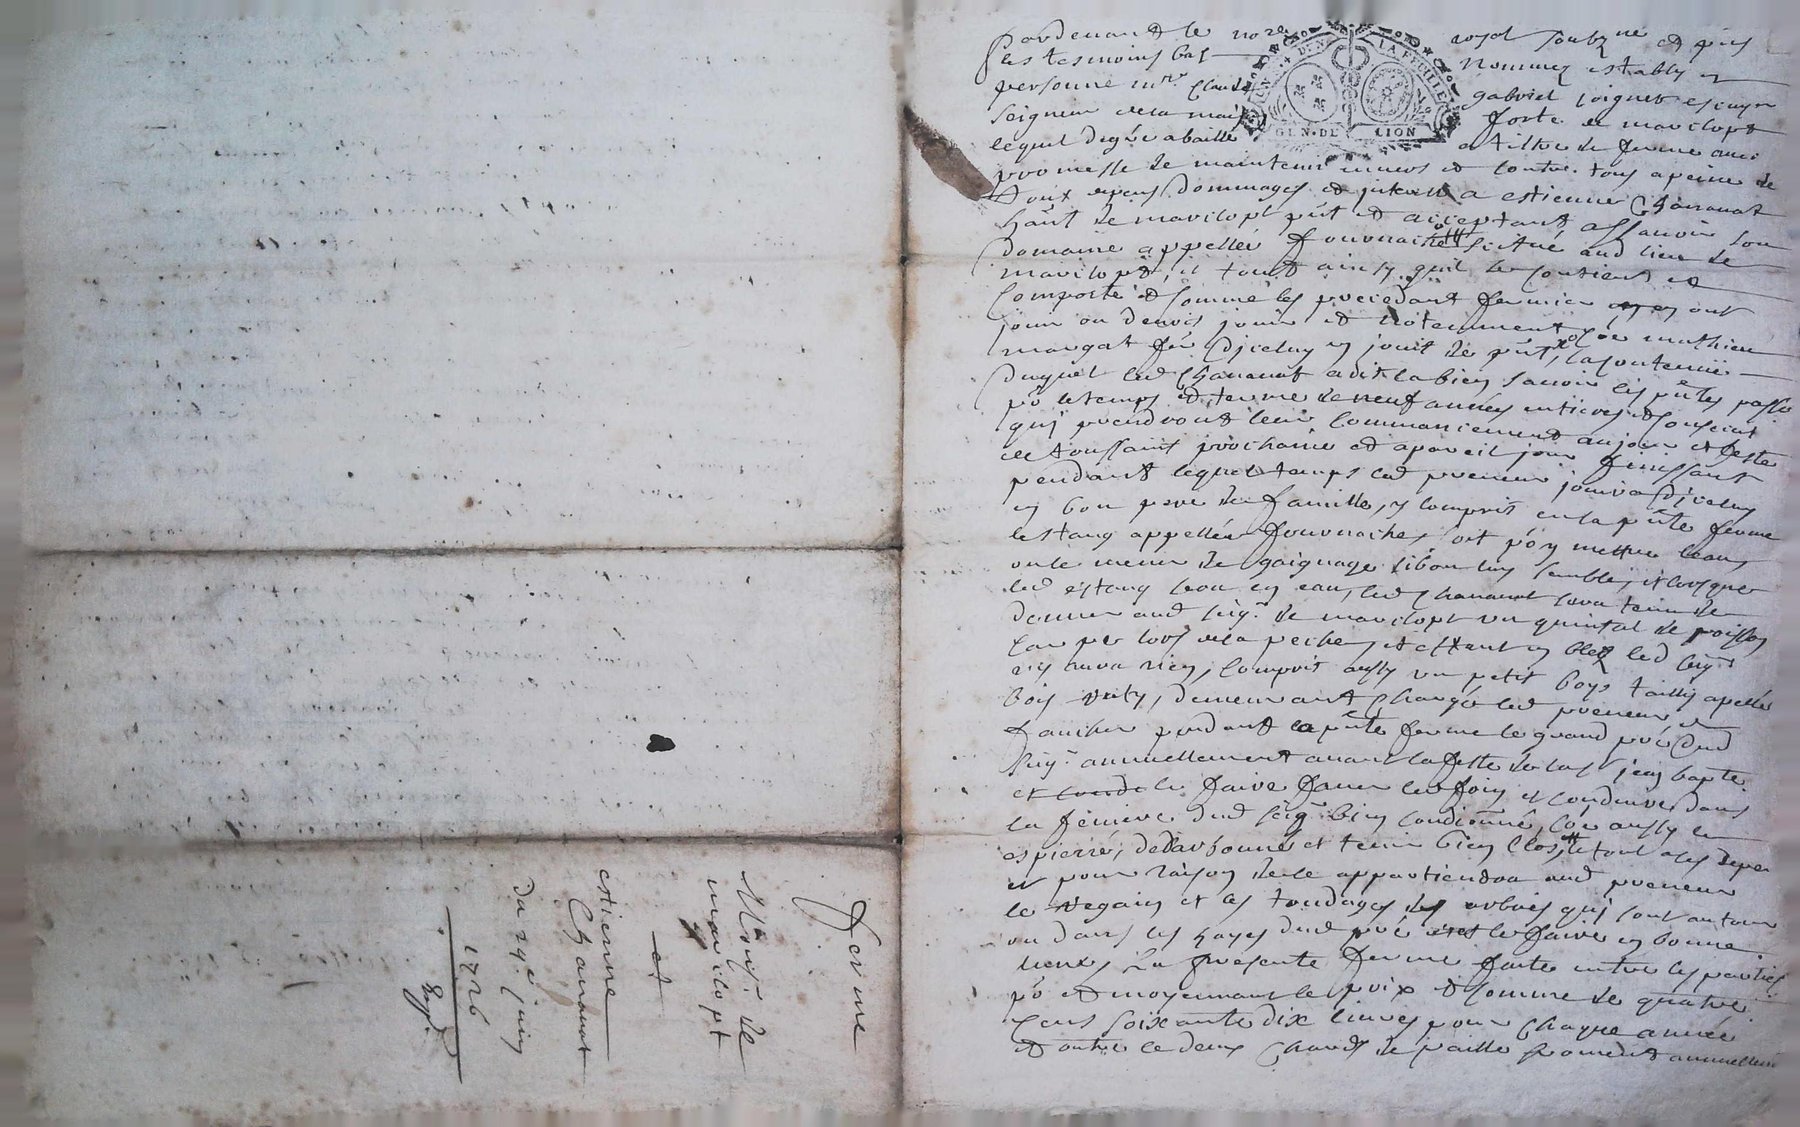 Pardevant le no.re royal soubz.né et pñs
les tesmoins bas nommez estably en
personne m.re Claude gabriel loignet escuyer
seigneur de la maison forte de marilopt
lequel de gré a baillé a tiltre de ferme avec
promesse de maintenir envers et contre tous a peine de
tous despens dommages et interests a estienne Chananat
hañt de marilopt pñt et acceptant assavoir son
domaine appellés fournaiche scitué aud lieu de
marilopt, et tout ainsy quil se contient et
Comporte et comme les precedant fermier en ont
jouir ou deuvos jouir et notemment mathieu
margat fer d'jceluy en jouit de pñt, la contenue
duquel led Chananat a dit la bien savoir les pñtes passé
po le temps et terme de neuf années entieres et consecut
qui prendront leur Commancement au jour et feste
de toussaint prochaine et a pareil jour finissant
pendant lequel temps led preneur jouira d'jceluy
en bon pere de famille, y compris en la pñte ferme
lestang appellés fournaiche, soit po y mettre leau
ou le mener de gaignage si bon luy semble, et lorsque
led estang sera en eau, led Chananat sera tenu de
donner aud seig.r de marilopt un quintal de poisson
lors de la peche, et estant en bled led seig.r
ny aura rien, Compris aussy un petit boys taillis apellés
boys, demeurant Chargé led preneur de
faucher pendant la pñte ferme le grand pré dud
seig.r annuellement avant la feste de las jean bapte
et le faire faner led foin et conduire dans
la feniere dud seig.r bien conditionné, aussy le
espierré, et tenir bien clos, le tout a ses depen
et pour raison de le appartiendra aud preneur
le regain et les tondages des arbres qui sont autour
ou dans les hayes dud pré le faire en bonne
La presente ferme faite entre les parties
po et moyennant le prix et somme de quatre
Cens soixante dix livres pour chaque année
et outre ce deux Chards de paille froment annuellem
GEN. DE LION
LA FEUILLE
ferme
M.re seig.r de
marilopt
et
estienne
Chananat
du 29.e juin
1726
Exp.